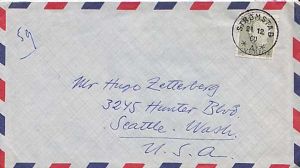 59
STRÖMSTAD
21 12
60
* A *
Mr Hugo Zetterberg
3245 Hunter Blvd.
Seattle. Wash.
U. S. A